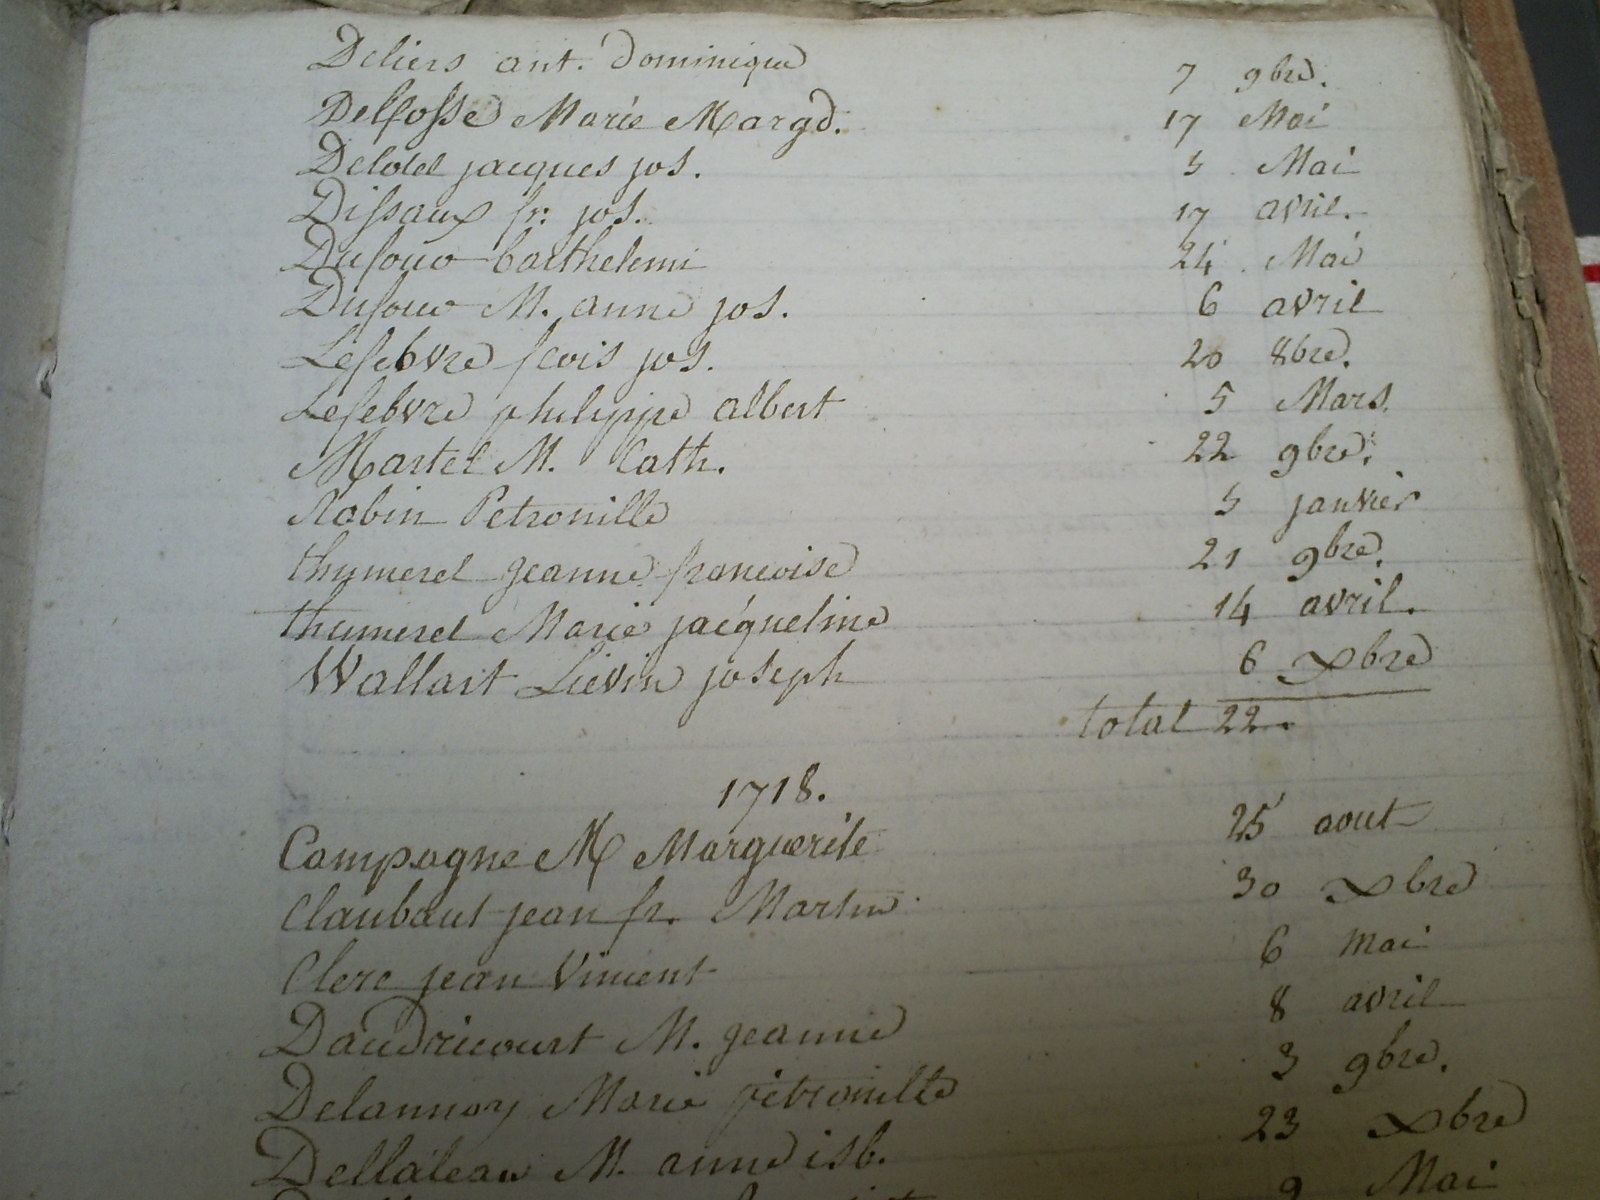 Deliers ant. Dominique 7 9bre.
Delfosse Marie Margd. 17 Mai
Delotel jacques jos. 3 Mai
Dissaux fr: jos. 17 avril.
Dufour barthelemi 24 Mai
Dufour M. anne jos. 6 avril
Lefebvre fcois jos. 20 8bre.
Lefebvre philippe albert 5 Mars
Martel M. Cath. 22 9bre.
Robin Petronille 5 janvier
thumerel jeanne francoise 21 9bre.
thumerel Marie jacqueline 14 avril.
Wallart Lievin joseph 6 Xbre
total 22.
1718.
Campagne M Marguerite 25 aout
Claubaut jean fr. Martin 30 Xbre
Clerc jean Vincent 6 mai
Daudricourt M. jeanne 8 avril
Delannoy Marie petronille 3 9bre.
Dellaleau M. anne isb. 23 Xbre
9 Mai